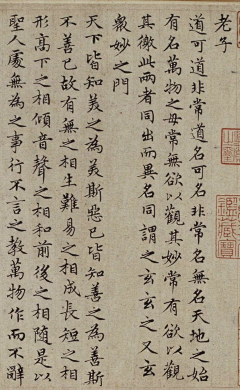 老子
道可道非常道名可名非常名無名天地之始
有名萬物之母常無欲以觀其妙常有欲以觀
其徼此兩者同出而異名同謂之玄玄之又玄
衆妙之門
天下皆知美之為美斯惡已皆知善之為善斯
不善已故有無之相生難易之相成長短之相
形高下之相傾音聲之相和前後之相隨是以
聖人處無為之事行不言之教萬物作而不辭